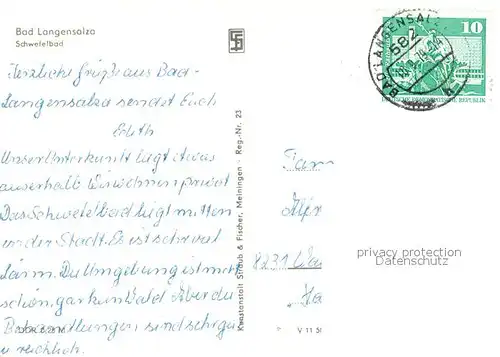 Bad Langensalza
Schwefelbad
Herzliche Grüße aus Bad-
Langensalza sendet Euch
Edith
Unser Unterkunft liegt etwas
ausserhalb. Wir wohnen privat
Das Schwefelbad liegt mitten
in der Stadt. Es ist sehr viel
Lärm. Die Umgebung ist nicht
schön, gar kein Wald. Aber die
Behandlungen sind sehr gu
reichlich.
Kunstanstalt Straub & Fischer, Meiningen - Reg.-Nr. 23
V 11 50
BAD LANGENSALZA
582
10
DEUTSCHE DEMOKRATISCHE REPUBLIK
Fam
8231
privacy protection
Datenschutz